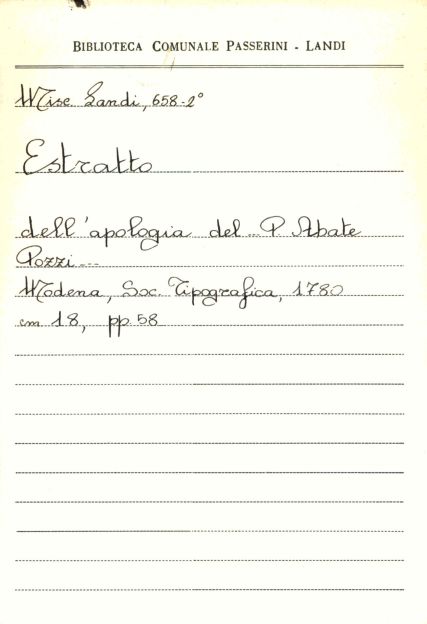 BIBLIOTECA COMUNALE PASSERINI - LANDI
Misc. Landi, 658-2°
Estratto
dell'apologia del ... P. Abate
Pozzi ...
Modena, Soc. Tipografica, 1780
cm 18, pp. 58